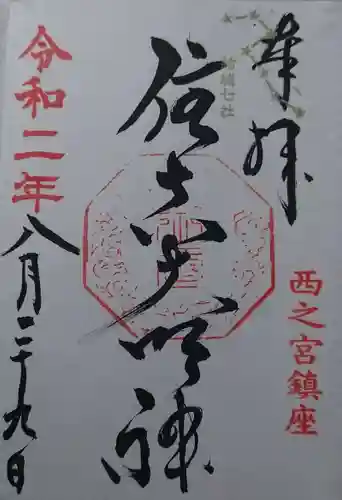 奉拝
結城七社
西之宮鎮座
住吉大明神
令和二年
八月二十九日